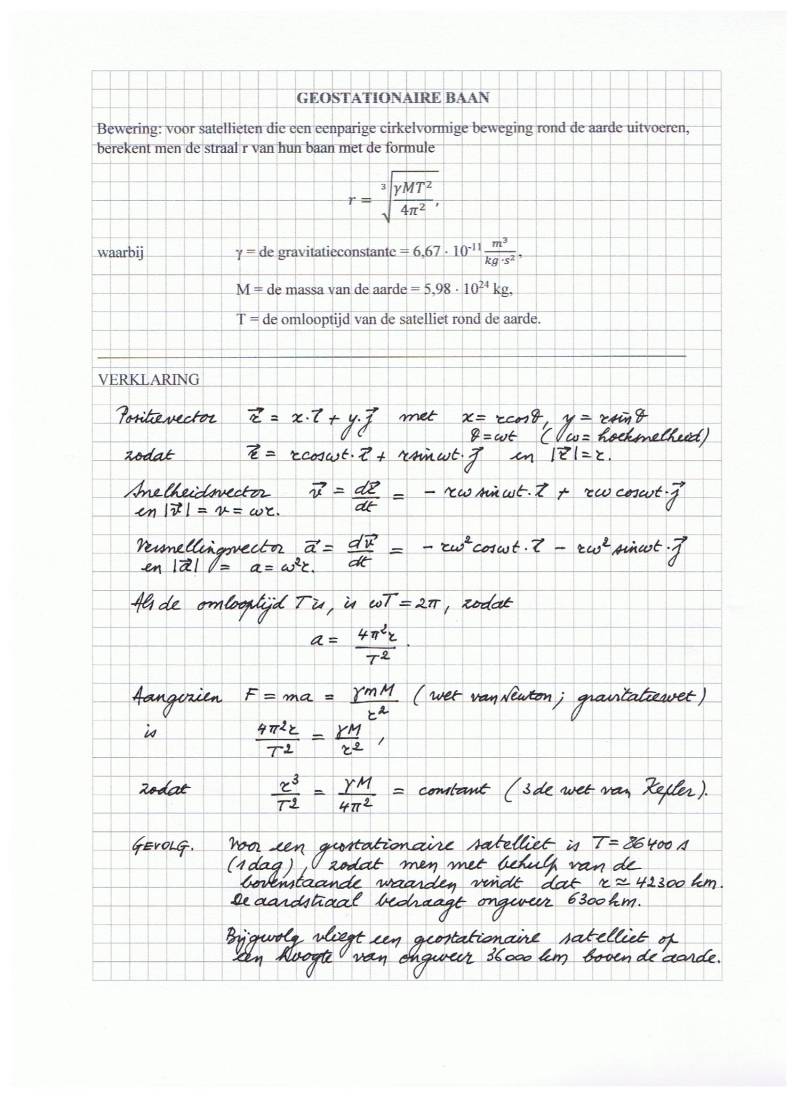 GEOSTATIONAIRE BAAN
Bewering: voor satellieten die een eenparige cirkelvormige beweging rond de aarde uitvoeren,
berekent men de straal r van hun baan met de formule
r = ∛(γMT²/4π²),
waarbij γ = de gravitatieconstante = 6,67 · 10⁻¹¹ m³/(kg·s²),
M = de massa van de aarde = 5,98 · 10²⁴ kg,
T = de omlooptijd van de satelliet rond de aarde.
VERKLARING
Positievector r⃗ = x·i⃗ + y·j⃗ met x = rcosθ, y = rsinθ
θ = ωt (ω = hoeksnelheid)
zodat r⃗ = rcosωt·i⃗ + rsinωt·j⃗ en |r⃗| = r.
Snelheidsvector v⃗ = dr⃗/dt = − rω sinωt·i⃗ + rω cosωt·j⃗
en |v⃗| = v = ωr.
Versnellingsvector a⃗ = dv⃗/dt = − rω²cosωt·i⃗ − rω² sinωt·j⃗
en |a⃗| = a = ω²r.
Als de omlooptijd T is, is ωT = 2π, zodat
a = 4π²r/T².
Aangezien F = ma = γmM/r² (wet van Newton; gravitatiewet)
is 4π²r/T² = γM/r²,
zodat r³/T² = γM/4π² = constant (3de wet van Kepler).
GEVOLG. Voor een geostationaire satelliet is T = 86400 s
(1 dag), zodat men met behulp van de
bovenstaande waarden vindt dat r ≃ 42300 km.
De aardstraal bedraagt ongeveer 6300 km.
Bijgevolg vliegt een geostationaire satelliet op
een hoogte van ongeveer 36000 km boven de aarde.